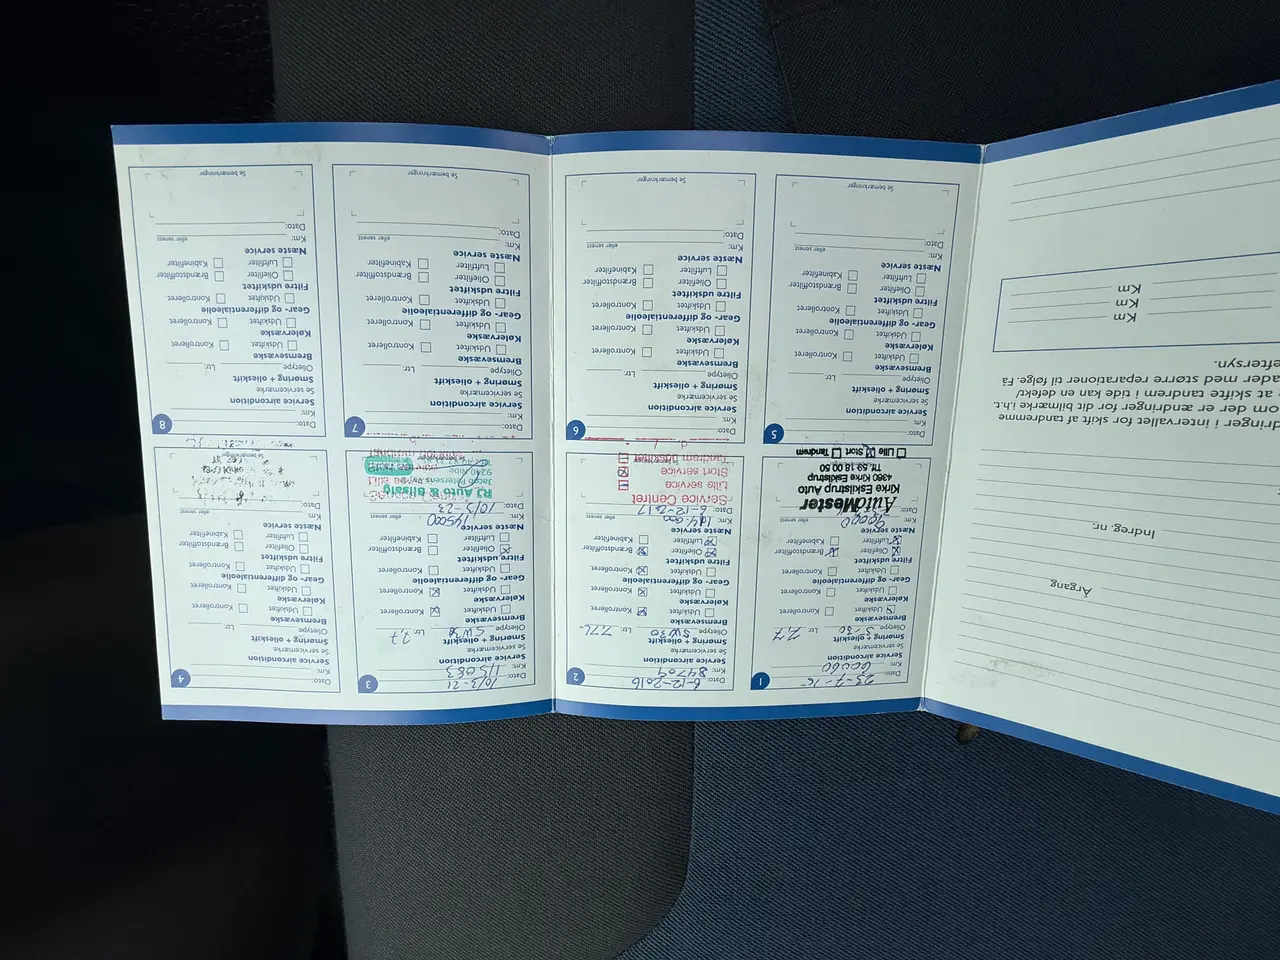 1
Dato: 23-7-15
Km: 60060
Service aircondition
Se servicemærke
Smøring + olieskift
Olietype 5-30 Ltr. 7,7
Bremsevæske
Udskiftet Kontrolleret
Kølervæske
Udskiftet Kontrolleret
Gear- og differentialeolie
Udskiftet Kontrolleret
Filtre udskiftet
Oliefilter Brændstoffilter
Luftfilter Kabinefilter
Næste service
Km: 90000 eller senest
Dato:
AutoMester
Kirke Eskilstrup Auto
4360 Kirke Eskilstrup
Tlf. 59 18 00 50
Lille Stort Tandrem
2
Dato: 6-12-2016
Km: 84709
Service aircondition
Se servicemærke
Smøring + olieskift
Olietype 5W30 Ltr. 7.7L
Bremsevæske
Udskiftet Kontrolleret
Kølervæske
Udskiftet Kontrolleret
Gear- og differentialeolie
Udskiftet Kontrolleret
Filtre udskiftet
Oliefilter Brændstoffilter
Luftfilter Kabinefilter
Næste service
Km: 114.000 eller senest
Dato: 6-12-2017
Service Centret
Lille service
Stort service
Tandrem udskiftet
3
Dato: 10/3-21
Km: 115083
Service aircondition
Se servicemærke
Smøring + olieskift
Olietype 5W30 Ltr. 7,7
Bremsevæske
Udskiftet Kontrolleret
Kølervæske
Udskiftet Kontrolleret
Gear- og differentialeolie
Udskiftet Kontrolleret
Filtre udskiftet
Oliefilter Brændstoffilter
Luftfilter Kabinefilter
Næste service
Km: 145000 eller senest
Dato: 10/3-23
RJ Auto & Bilsalg
9240 Nibe
4
Dato:
Km:
Service aircondition
Se servicemærke
Smøring + olieskift
Olietype Ltr.
Bremsevæske
Udskiftet Kontrolleret
Kølervæske
Udskiftet Kontrolleret
Gear- og differentialeolie
Udskiftet Kontrolleret
Filtre udskiftet
Oliefilter Brændstoffilter
Luftfilter Kabinefilter
Næste service
Km: eller senest
Dato:
Se bemærkninger
5
Dato:
Km:
Service aircondition
Se servicemærke
Smøring + olieskift
Olietype Ltr.
Bremsevæske
Udskiftet Kontrolleret
Kølervæske
Udskiftet Kontrolleret
Gear- og differentialeolie
Udskiftet Kontrolleret
Filtre udskiftet
Oliefilter Brændstoffilter
Luftfilter Kabinefilter
Næste service
Km: eller senest
Dato:
Se bemærkninger
6
Dato:
Km:
Service aircondition
Se servicemærke
Smøring + olieskift
Olietype Ltr.
Bremsevæske
Udskiftet Kontrolleret
Kølervæske
Udskiftet Kontrolleret
Gear- og differentialeolie
Udskiftet Kontrolleret
Filtre udskiftet
Oliefilter Brændstoffilter
Luftfilter Kabinefilter
Næste service
Km: eller senest
Dato:
Se bemærkninger
7
Dato:
Km:
Service aircondition
Se servicemærke
Smøring + olieskift
Olietype Ltr.
Bremsevæske
Udskiftet Kontrolleret
Kølervæske
Udskiftet Kontrolleret
Gear- og differentialeolie
Udskiftet Kontrolleret
Filtre udskiftet
Oliefilter Brændstoffilter
Luftfilter Kabinefilter
Næste service
Km: eller senest
Dato:
Se bemærkninger
8
Dato:
Km:
Service aircondition
Se servicemærke
Smøring + olieskift
Olietype Ltr.
Bremsevæske
Udskiftet Kontrolleret
Kølervæske
Udskiftet Kontrolleret
Gear- og differentialeolie
Udskiftet Kontrolleret
Filtre udskiftet
Oliefilter Brændstoffilter
Luftfilter Kabinefilter
Næste service
Km: eller senest
Dato:
Se bemærkninger
Årgang
Indreg. nr.
dringer i intervallet for skift af tandremme
om der er ændringer for dit bilmærke i.h.t.
at skifte tandrem i tide kan en defekt/
ader med større reparationer til følge. Få
eftersyn.
Km
Km
Km